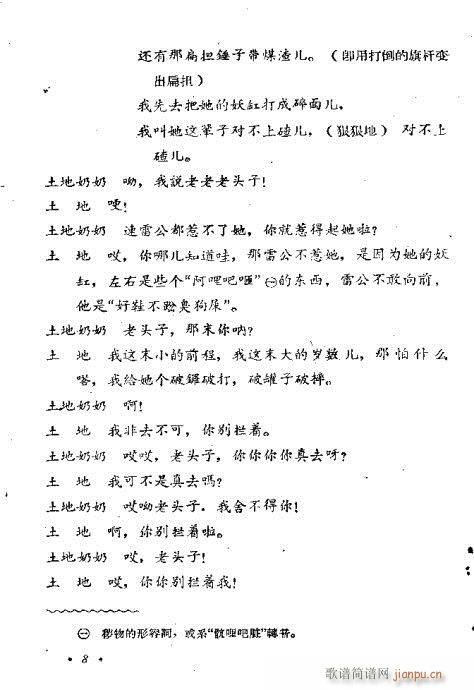 还有那扁担錘子带煤渣儿。(即用打倒的旗杆变
出扁担)
我先去把她的妖缸打成碎面儿,
我叫她这辈子对不上碴儿,(狠狠地) 对不上
碴儿。
土地奶奶 呦,我説老老老头子!
土 地 哽!
土地奶奶 連雷公都惹不了她,你就惹得起她啦?
土 地 哎,你哪儿知道哇,那雷公不惹她,是因为她的妖
缸,左右是些个“阿哩吧咂”㊀的东西,雷公不敢向前,
他是“好鞋不跐臭狗屎”。
土地奶奶 老头子,那末你呐?
土 地 我这末小的前程,我这末大的岁数儿,那怕什么
嗒,我给她个破鑼破打,破罐子破摔。
土地奶奶 啊!
土 地 我非去不可,你别拦着。
土地奶奶 哎哎,老头子,你你你你真去呀?
土 地 我可不是真去嗎?
土地奶奶 哎呦老头子.我舍不得你!
土 地 啊,你别拦着啦。
土地奶奶 哎,老头子!
土 地 哎,你你别拦着我!
㊀ 秽物的形容詞,或系“骯哩吧脏”轉音。
· 8 ·
歌谱简谱网
www.jianpu.cn